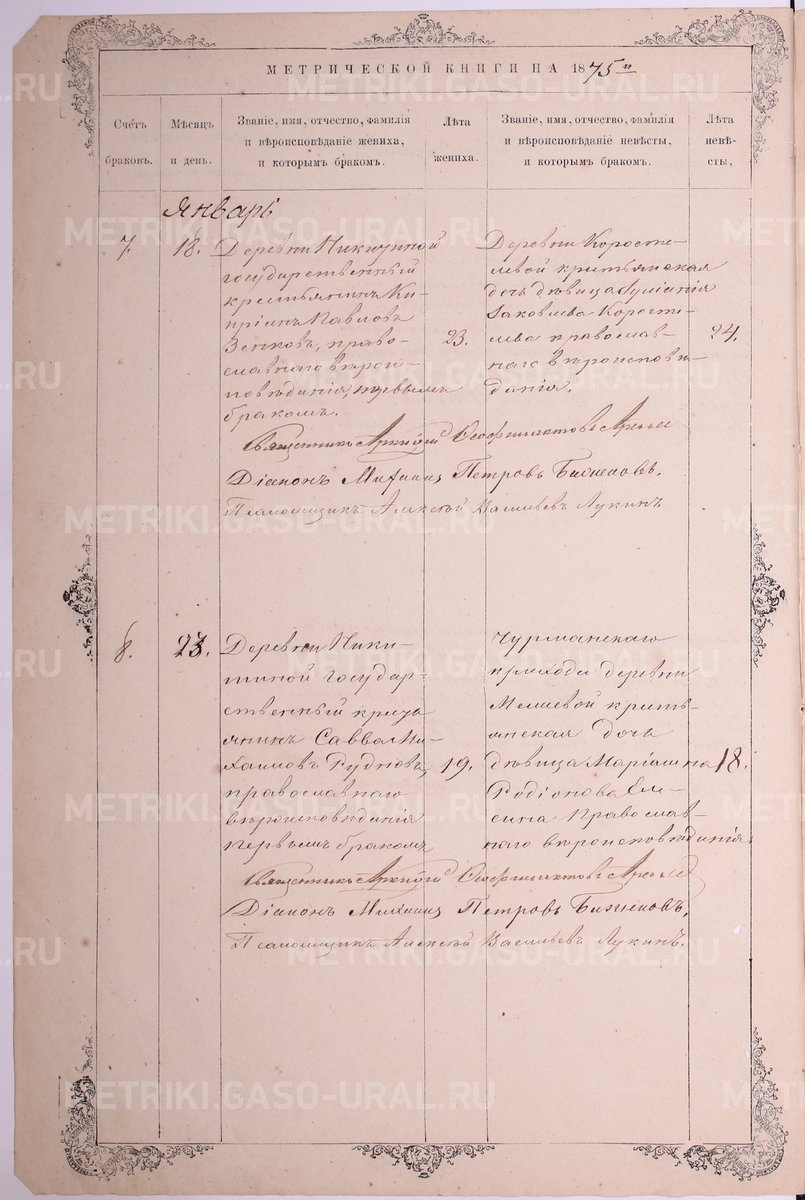 МЕТРИЧЕСКОЙ КНИГИ НА 1875й
Счётъ браковъ.
Мѣсяцъ и день.
Званіе, имя, отчество, фамилія и вѣроисповѣданіе жениха, и которымъ бракомъ.
Лѣта жениха.
Званіе, имя, отчество, фамилія и вѣроисповѣданіе невѣсты, и которымъ бракомъ.
Лѣта невѣсты,
Январь
7.
18.
Деревни Никитиной
государственный
крестьянинъ Ки-
пріянъ Павловъ
Зенковъ, право-
славнаго вѣроис-
повѣданія, первымъ
бракомъ.
23.
Деревни Коросте-
левой крестьянская
дочь дѣвица
Іаковлева Коросте-
лева православ-
наго вѣроисповѣ-
данія.
24.
Священникъ Аркадій Ѳеофилактовъ
Діаконъ Михаилъ Петровъ Баженовъ.
Псаломщикъ Алексѣй Васильевъ Лукинъ
8.
23.
Деревни Ники-
тиной государ-
ственный кресть
янинъ Савва Ми-
хаиловъ Рудновъ,
православнаго
вѣроисповѣданія
первымъ бракомъ
19.
Чурманскаго
прихода деревни
Мелиевой кресть-
янская дочь
дѣвица Маріамна
Родіонова Ел-
сина православ-
наго вѣроисповѣданія
18.
Священникъ Аркадій Ѳеофилактовъ
Діаконъ Михаилъ Петровъ Баженовъ,
Псаломщикъ Алексѣй Васильевъ Лукинъ.
METRIKI.GASO-URAL.RU